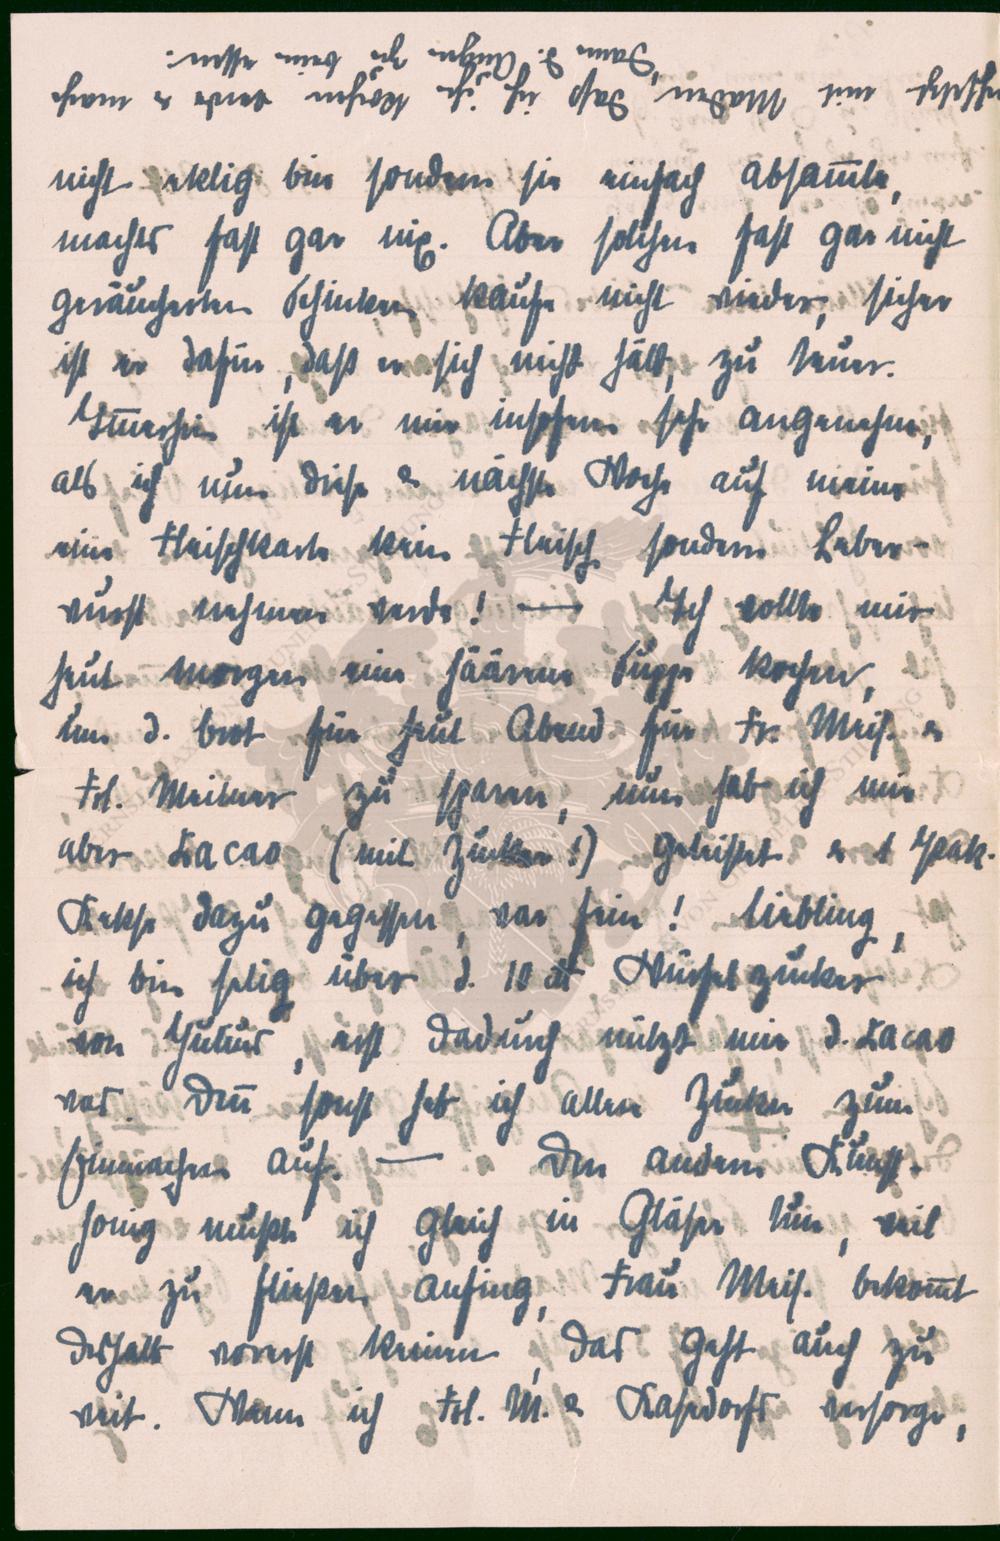 nicht eklig bin sondern sie einfach absam̅le,
machts fast gar nix. Aber solchen fast gar nicht
geräucherten Schinken kaufe nicht wieder, sicher
ist er dafür, daß er sich nicht hält, zu teuer.
Im̅erhin ist er mir insofern sehr angenehm,
als ich nun diese & nächste Woche auf meine
eine Fleischkarte kein Fleisch sondern Leber-
wurst nehmen werde! — Ich wollte mir
heut morgen eine Suppe kochen,
um d. brot für heut Abend für Fr. Meis. &
Frl. Meitner zu sparen, nun hab ich mir
aber Kacao (mit Zucker!) geleistet & 1 Pak.
Kekse dazu gegessen, war fein! Liebling,
ich bin selig über d. 10 ℔ Würfelzucker
von Julius, erst dadurch nützt mir d. Kacao
was. Den̅ sonst heb ich allen Zucker zum
Einmachen auf. — Den andern Kunst-
honig mußte ich gleich in Gläser tun, weil
er zu fließen anfing, Frau Meis. bekom̅t
deshalb vorerst keinen, das geht auch zu
weit. Wenn ich Frl. M. & versorge,
mit Maden, daß ich ihn kochen werde & mach
dann d. Augen zu beim essen.